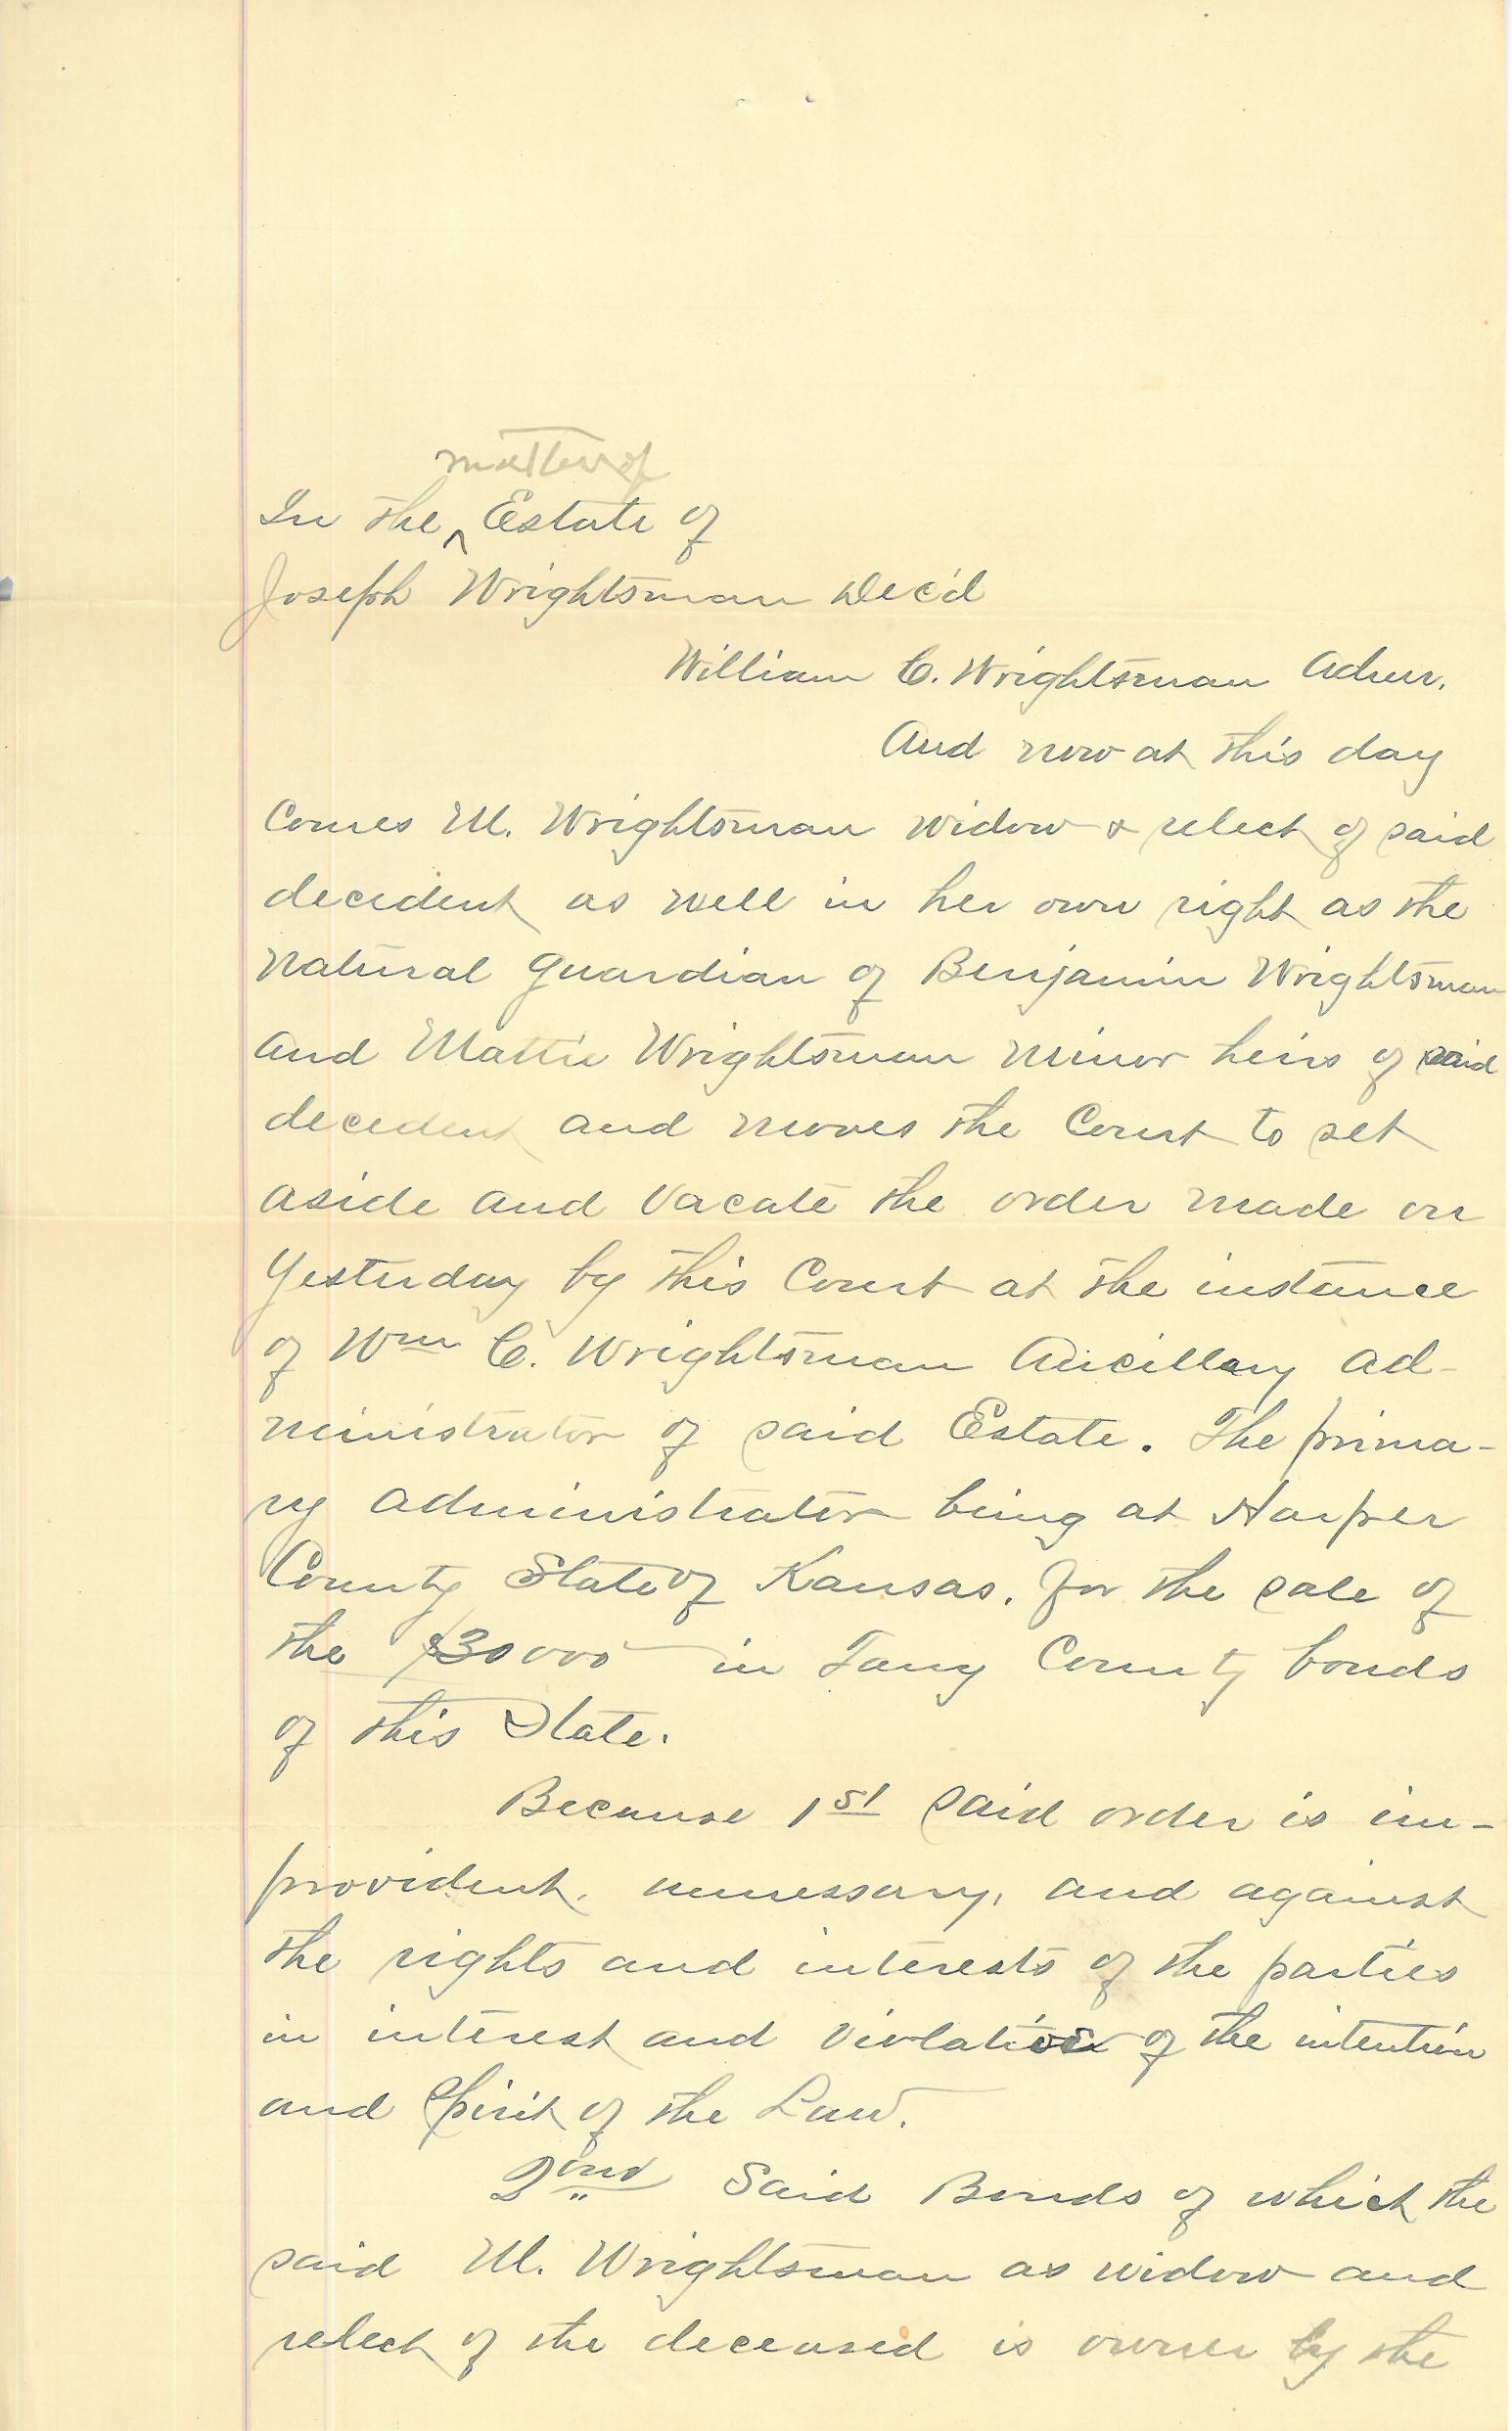 matter of
In the ‸ Estate of
Joseph Wrightsman Dec'd
William C. Wrightsman Admr.
And now at this day
Comes M. Wrightsman widow & relect of said
decedent as well in her own right as the
natural guardian of Benjamin Wrightsman
and Mattie Wrightsman minor heirs of said
decedent and moves the Court to set
aside and vacate the order made on
Yesterday by this Court at the instance
of Wm C. Wrightsman Ancillary ad-
ministrator of said Estate. The prima-
ry administrator being at Harper
County State of Kansas. for the sale of
the $30000 in Tany County bonds
of this State.
Because 1st said order is im-
provident, unnessary, and against
the rights and interests of the parties
in interest and violative of the intention
and spirit of the Law.
2ond Said Bonds of which the
said M. Wrightsman as widow and
relect of the deceased is owner by the